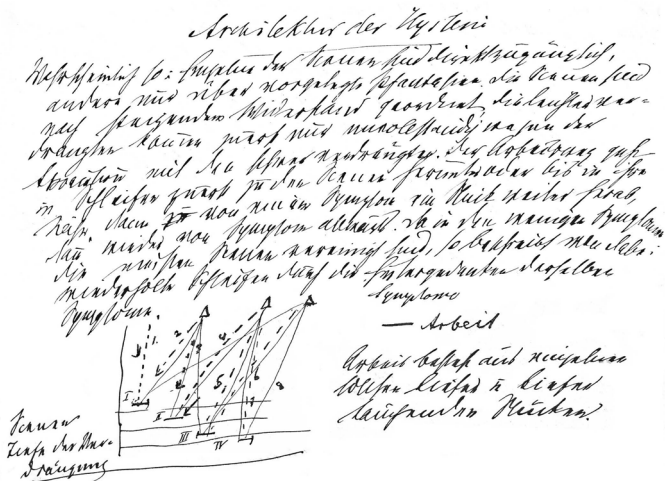 Architektur der Hysterie
Wahrscheinlich so: Einzelne der Scenen sind direkt zugänglich,
andere nur über vorgelegte Phantasien. Die Scenen sind
nach steigendem Widerstand geordnet, die leichter ver-
drängten kommen zuerst nur unvollständig wegen der
Association mit den schwer verdrängten. Der Arbeitsweg geht
in Schleifen zuerst in den Scenen herunter oder bis in ihre
Nähe, dann von einem Symptom ein Stück weiter herab,
dann wieder vom Symptom abwärts. Da in den wenigen Symptomen
die meisten Scenen vereinigt sind, so beschreibt man dabei
wiederholte Schleifen durch die Hintergedanken derselben
Symptome.
Symptome
— Arbeit
Arbeit besteht aus einzelnen
solchen tiefer u tiefer
tauchenden Stücken.
Scenen
Tiefe der Ver-
drängung
I
II
III
IV
1
2
5
6
8